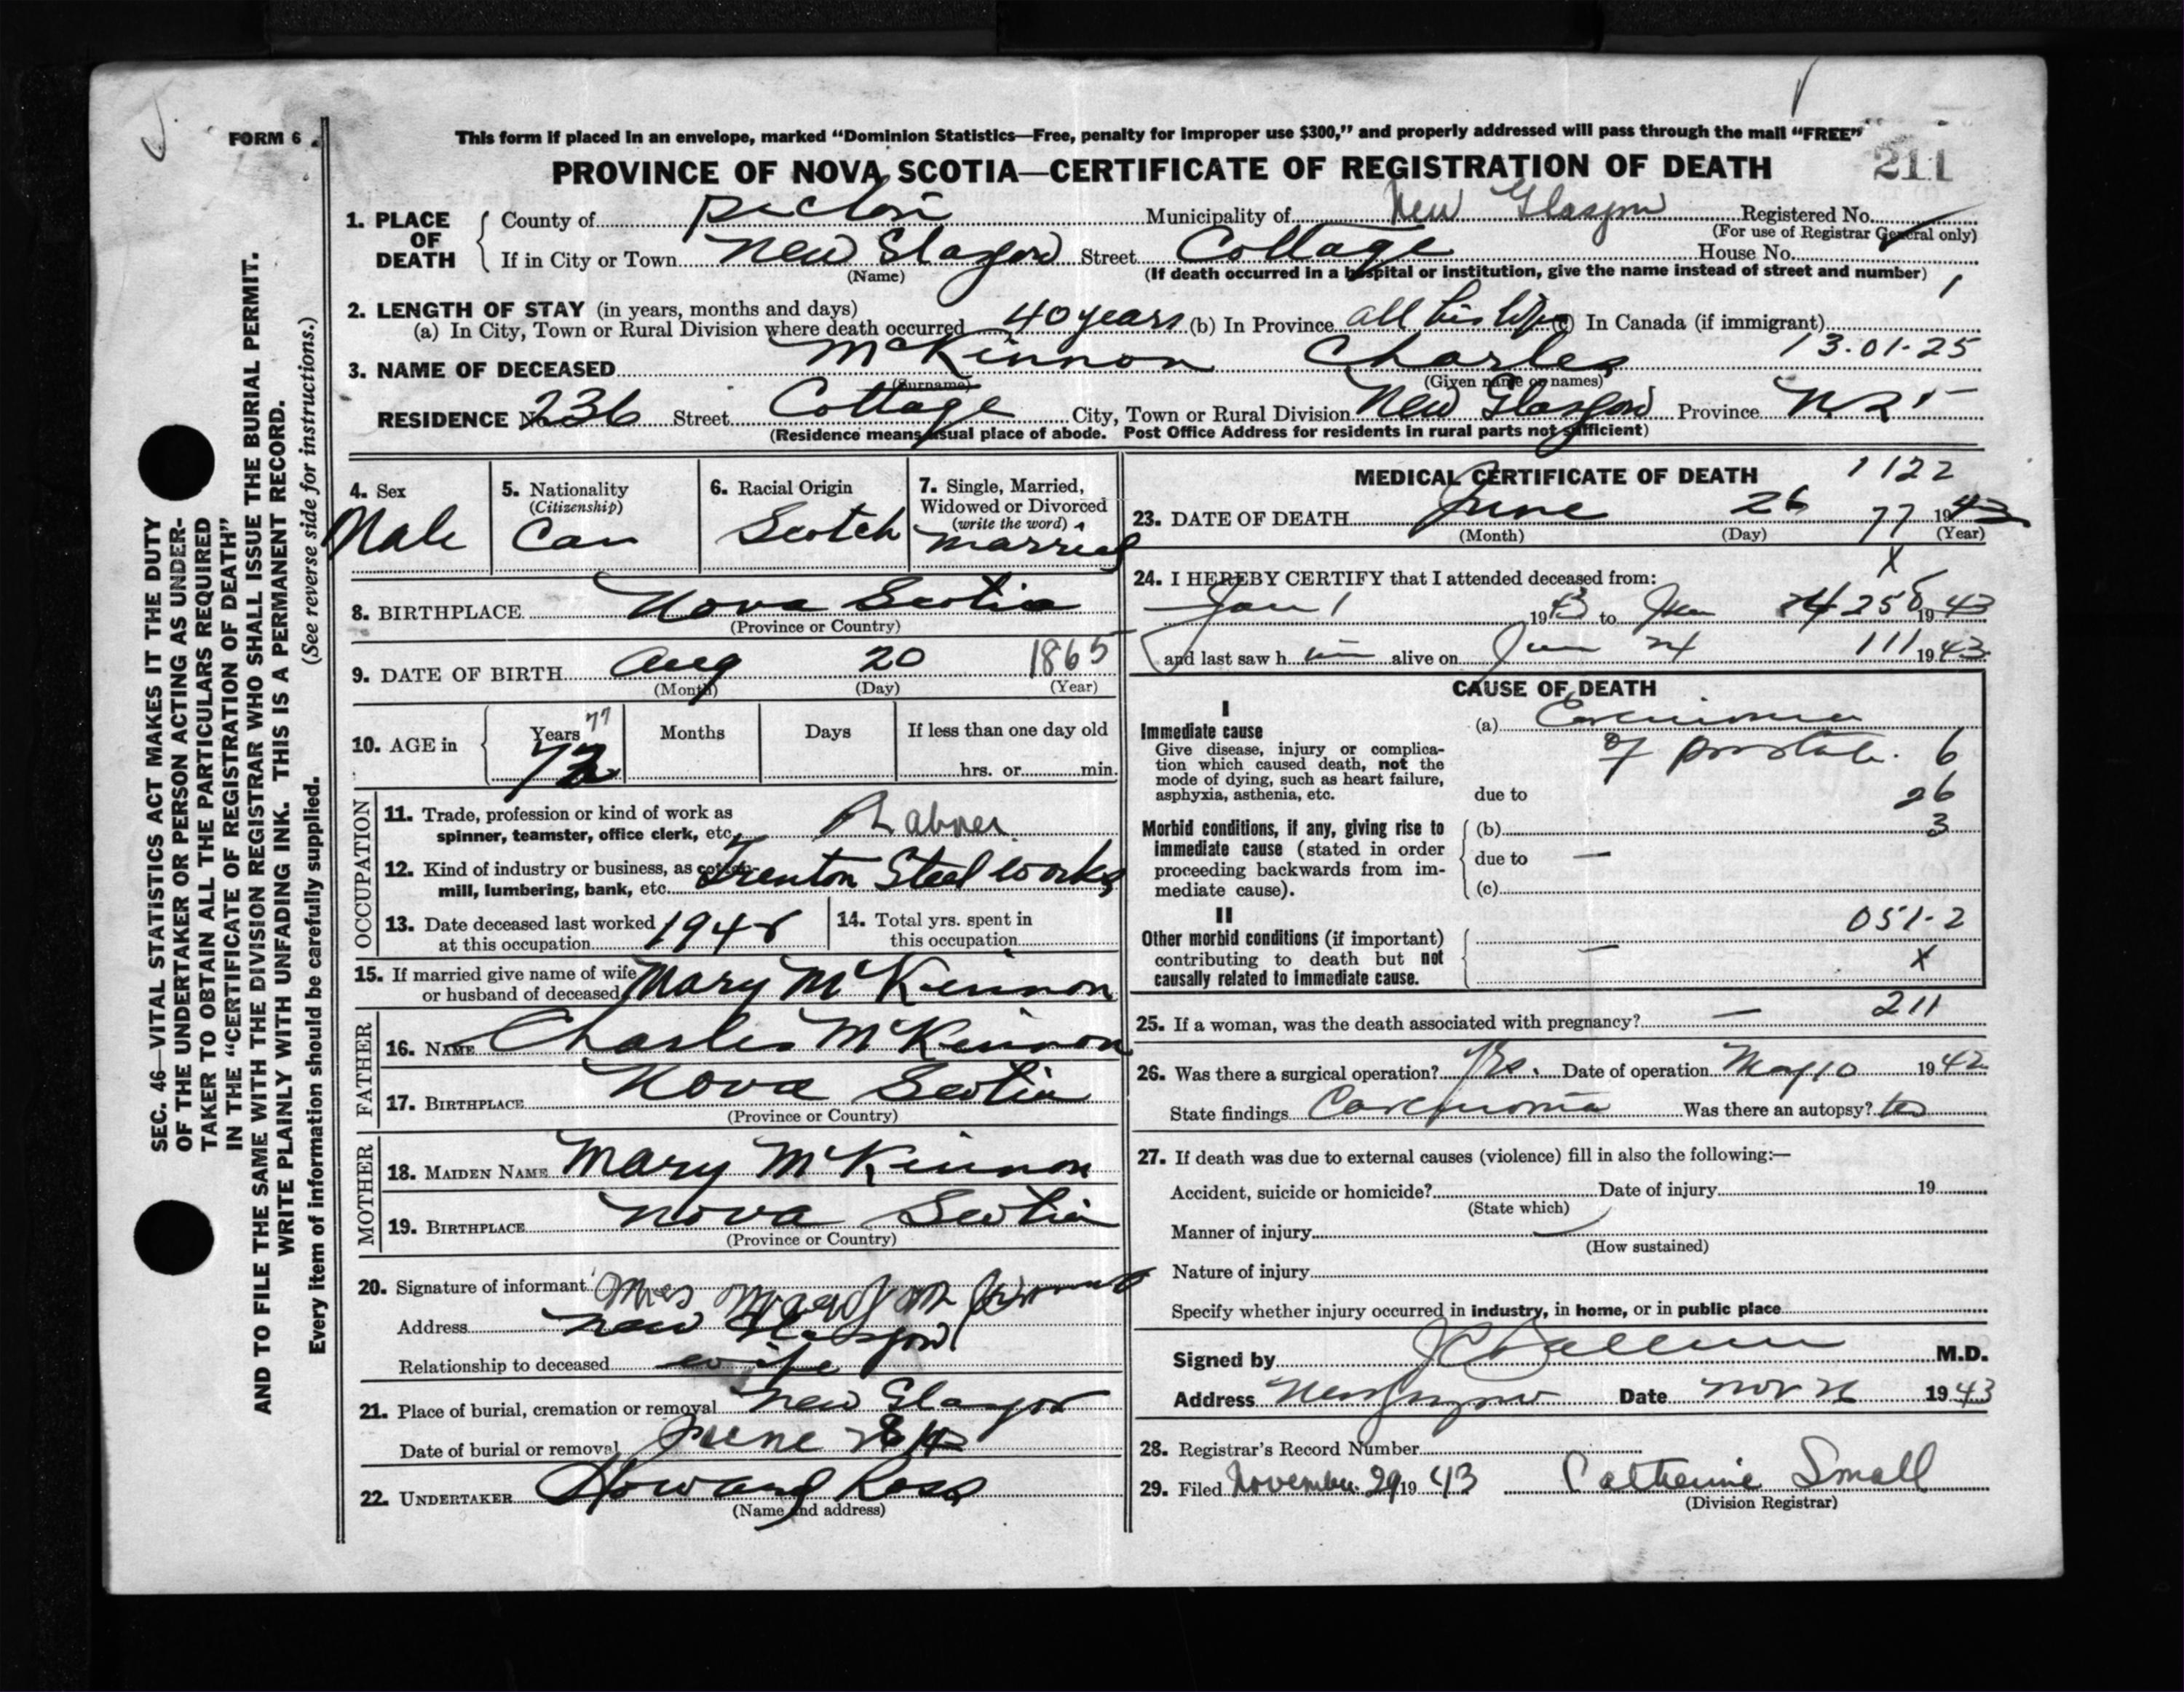 FORM 6
This form if placed in an envelope, marked “Dominion Statistics—Free, penalty for improper use $300,” and properly addressed will pass through the mail “FREE”
PROVINCE OF NOVA SCOTIA—CERTIFICATE OF REGISTRATION OF DEATH
211
1. PLACE OF DEATH
County of Pictou Municipality of New Glasgow Registered No.
(For use of Registrar General only)
If in City or Town New Glasgow Street Cottage House No.
(Name) (If death occurred in a hospital or institution, give the name instead of street and number)
2. LENGTH OF STAY (in years, months and days)
(a) In City, Town or Rural Division where death occurred 40 years (b) In Province all his life (c) In Canada (if immigrant)
13.01.25
3. NAME OF DECEASED McKinnon Charles
(Surname) (Given name or names)
RESIDENCE No. 236 Street Cottage City, Town or Rural Division New Glasgow Province
(Residence means usual place of abode. Post Office Address for residents in rural parts not sufficient)
4. Sex
Male
5. Nationality
(Citizenship)
Can
6. Racial Origin
Scotch
7. Single, Married,
Widowed or Divorced
(write the word)
Married
8. BIRTHPLACE Nova Scotia
(Province or Country)
9. DATE OF BIRTH Aug 20 1865
(Month) (Day) (Year)
10. AGE in
Years 77
Months
Days
If less than one day old
hrs. or min.
OCCUPATION
11. Trade, profession or kind of work as
spinner, teamster, office clerk, etc.
12. Kind of industry or business, as cotton
mill, lumbering, bank, etc. Trenton Steel works
13. Date deceased last worked
at this occupation
14. Total yrs. spent in
this occupation
15. If married give name of wife
or husband of deceased Mary McKinnon
FATHER
16. NAME Charles McKinnon
17. BIRTHPLACE Nova Scotia
(Province or Country)
MOTHER
18. MAIDEN NAME Mary McKinnon
19. BIRTHPLACE Nova Scotia
(Province or Country)
20. Signature of informant Mrs
Address New Glasgow
Relationship to deceased wife
21. Place of burial, cremation or removal New Glasgow
Date of burial or removal June 28
22. UNDERTAKER Howard Ross
(Name and address)
MEDICAL CERTIFICATE OF DEATH
1122
23. DATE OF DEATH June 26 1943
77
(Month) (Day) (Year)
X
24. I HEREBY CERTIFY that I attended deceased from:
Jan 1 1943 to Jun 1943
and last saw him alive on Jun 24 1943
111
CAUSE OF DEATH
I
Immediate cause
Give disease, injury or complica-
tion which caused death, not the
mode of dying, such as heart failure,
asphyxia, asthenia, etc.
(a) Carcinoma
of prostate. 6
due to 26
Morbid conditions, if any, giving rise to
immediate cause (stated in order
proceeding backwards from im-
mediate cause).
(b) 3
due to —
(c)
II
Other morbid conditions (if important)
contributing to death but not
causally related to immediate cause.
051-2
—
X
25. If a woman, was the death associated with pregnancy? — 211
26. Was there a surgical operation? Yes. Date of operation May 10 1942
State findings Carcinoma Was there an autopsy?
27. If death was due to external causes (violence) fill in also the following:—
Accident, suicide or homicide? Date of injury 19
(State which)
Manner of injury
(How sustained)
Nature of injury
Specify whether injury occurred in industry, in home, or in public place
Signed by M.D.
Address New Glasgow Date Nov 26 1943
28. Registrar’s Record Number
29. Filed November 29 1943 Catherine Small
(Division Registrar)
SEC. 46—VITAL STATISTICS ACT MAKES IT THE DUTY
OF THE UNDERTAKER OR PERSON ACTING AS UNDER-
TAKER TO OBTAIN ALL THE PARTICULARS REQUIRED
IN THE “CERTIFICATE OF REGISTRATION OF DEATH”
AND TO FILE THE SAME WITH THE DIVISION REGISTRAR WHO SHALL ISSUE THE BURIAL PERMIT.
WRITE PLAINLY WITH UNFADING INK. THIS IS A PERMANENT RECORD.
Every item of information should be carefully supplied. (See reverse side for instructions.)